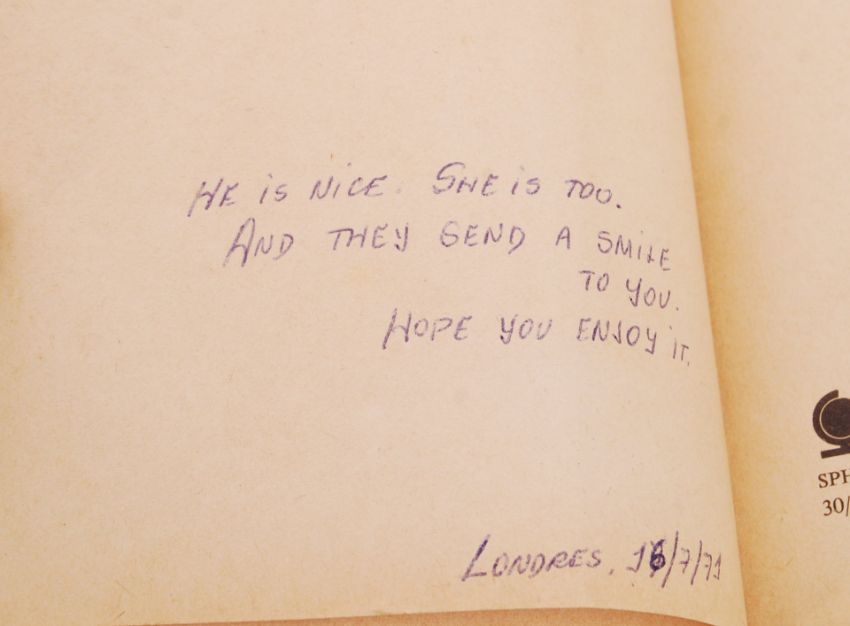 HE IS NICE. SHE IS TOO.
AND THEY SEND A SMILE
TO YOU.
HOPE YOU ENJOY IT.
LONDRES, 16/7/71
SPH
30/